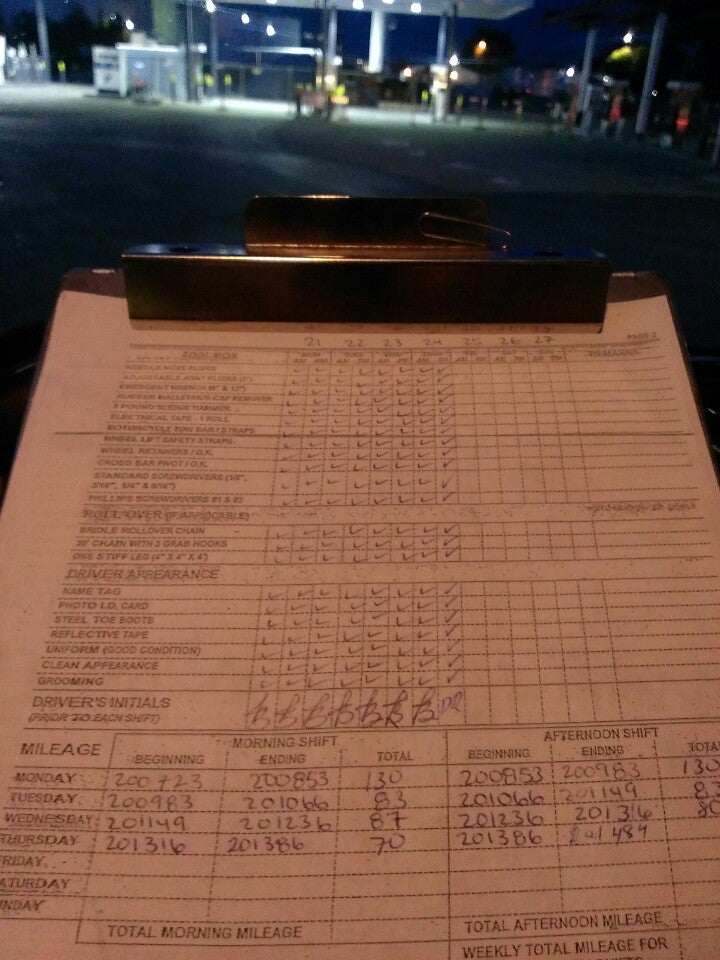 21 22 23 24 25 26 27 PAGE 2
TOOL BOX MON TUES WED THUR FRI SAT SUN REMARKS
AM PM AM PM AM PM AM PM AM PM AM PM AM PM
NEEDLE NOSE PLIERS
ADJUSTABLE JOINT PLIERS
CRESCENT WRENCH (6" & 12")
RUBBER MALLET/HUB CAP REMOVER
POUND SLEDGE HAMMER
ELECTRICAL TAPE - 1 ROLL
MOTORCYCLE TOW BAR/STRAPS
WHEEL LIFT SAFETY STRAPS
WHEEL RETAINERS / O.K.
CROSS BAR PIVOT / O.K.
STANDARD SCREWDRIVERS (1/8",
3/16", 1/4" & 5/16")
PHILLIPS SCREWDRIVERS #1 & #2
ROLLOVER (IF APPLICABLE)
BRIDLE ROLLOVER CHAIN
20' CHAIN WITH 2 GRAB HOOKS
ONE STIFF LEG (4" X 4" X 6')
DRIVER APPEARANCE
NAME TAG
PHOTO I.D. CARD
STEEL TOE BOOTS
REFLECTIVE TAPE
UNIFORM (GOOD CONDITION)
CLEAN APPEARANCE
GROOMING
DRIVER'S INITIALS
(PRIOR TO EACH SHIFT)
MILEAGE MORNING SHIFT AFTERNOON SHIFT
BEGINNING ENDING TOTAL BEGINNING ENDING TOTA
MONDAY 200723 200853 130 200853 200983 130
TUESDAY 200983 201066 83 201066 201149 83
WEDNESDAY 201149 201236 87 201236 201316 80
THURSDAY 201316 201386 70 201386 201484
FRIDAY
SATURDAY
SUNDAY
TOTAL MORNING MILEAGE TOTAL AFTERNOON MILEAGE
WEEKLY TOTAL MILEAGE FOR